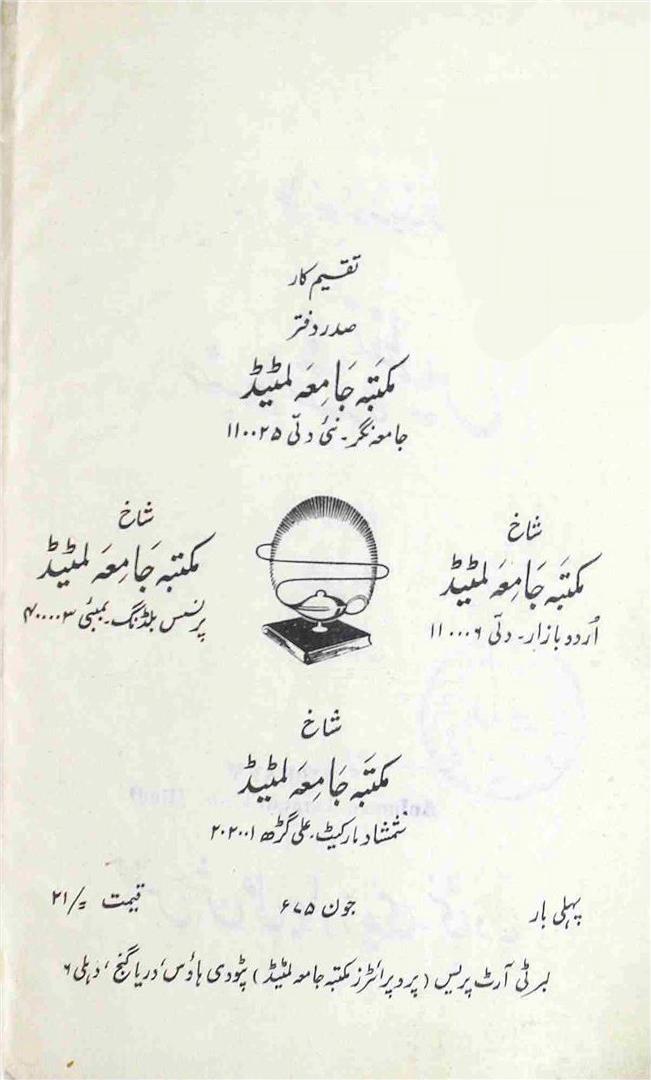 تقسیم کار
صدر دفتر
مکتبہ جامعہ لمٹیڈ
جامعہ نگر۔ نئی دلّی ۱۱۰۰۲۵
شاخ
مکتبہ جامعہ لمٹیڈ
اُردو بازار۔ دلّی ۱۱۰۰۰۶
شاخ
مکتبہ جامعہ لمٹیڈ
پرنسس بلڈنگ۔ بمبئی ۴۰۰۰۰۳
شاخ
مکتبہ جامعہ لمٹیڈ
شمشاد مارکیٹ۔ علی گڑھ ۲۰۲۰۰۱
پہلی بار جون ۶۷۵ قیمت ۲۱/=
لبرٹی آرٹ پریس (پروپرائٹرز مکتبہ جامعہ لمٹیڈ) پٹودی ہاؤس، دریا گنج، دہلی ۶